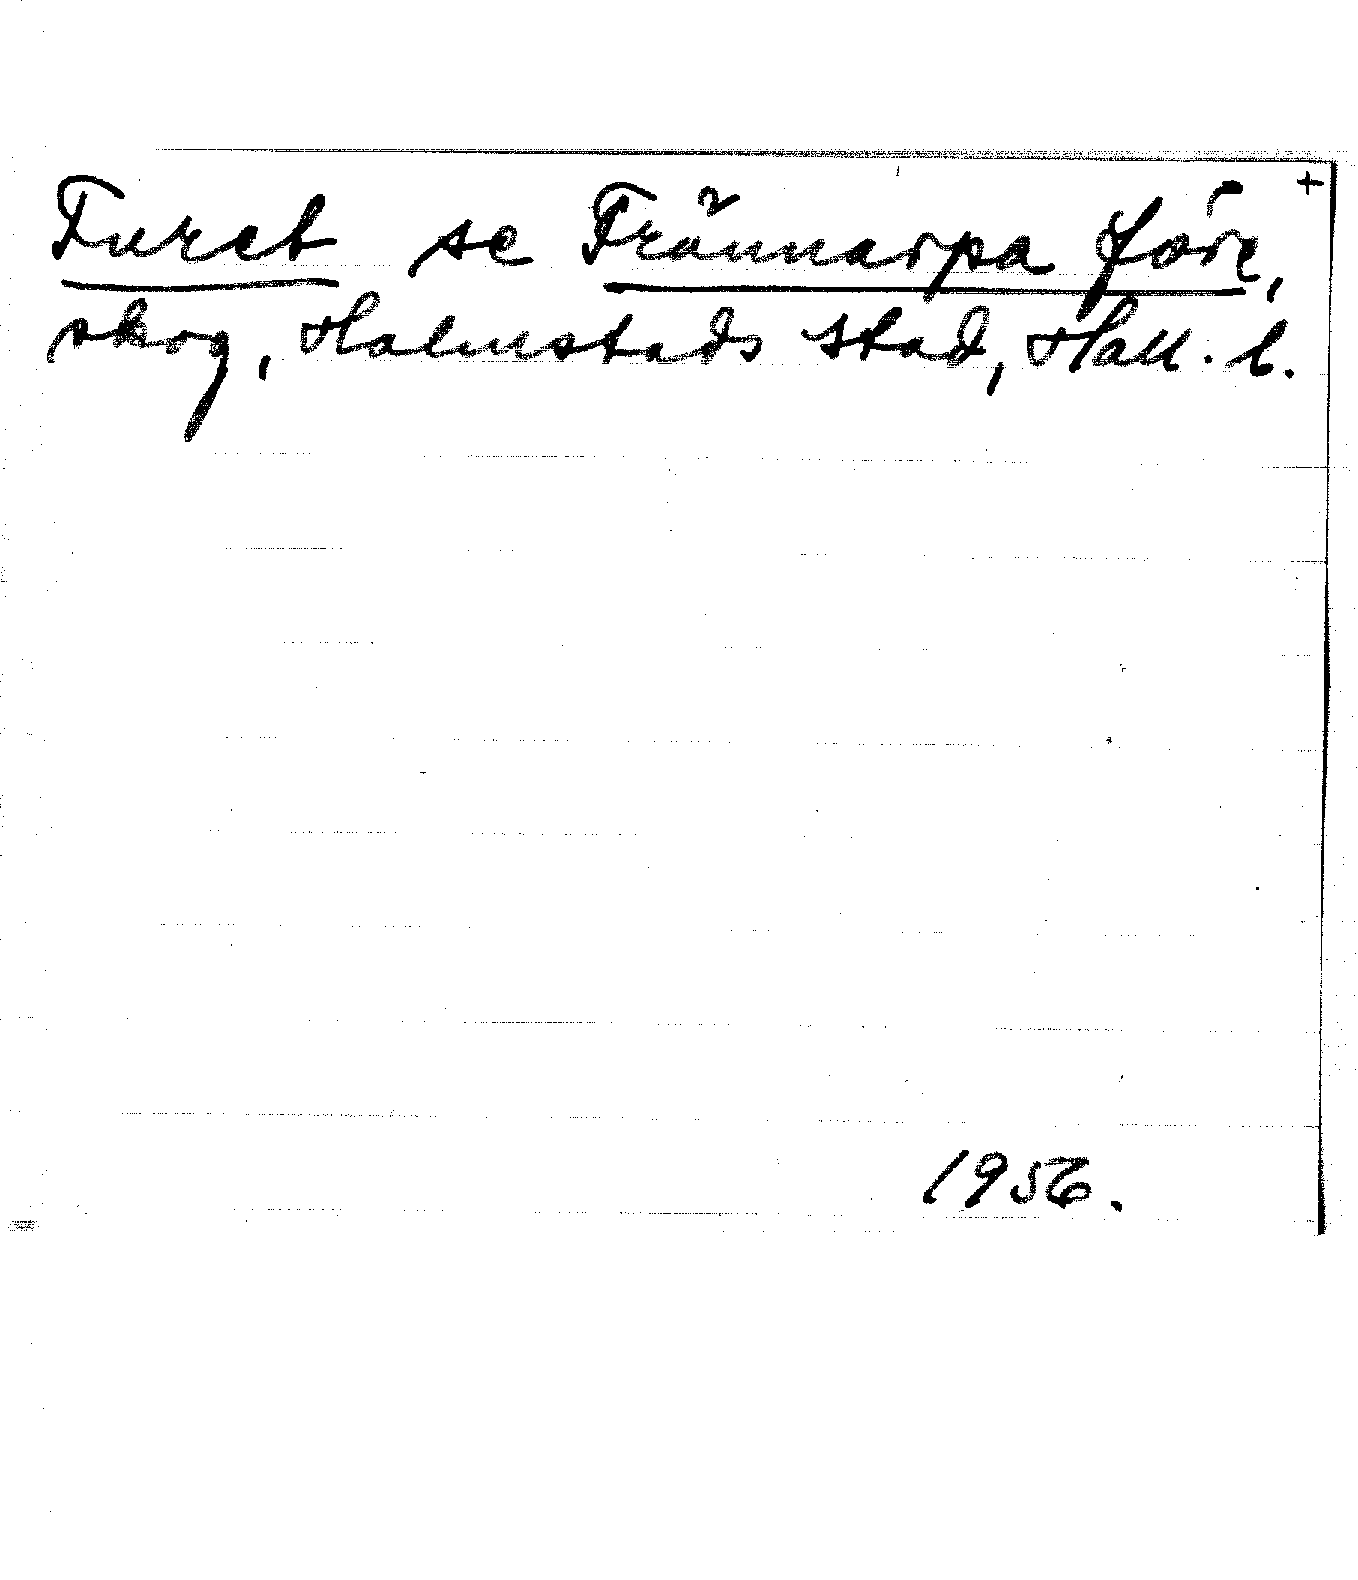 +
Furet se Frännarpa före,
skog, Halmstads stad, Hall. l.
1956.